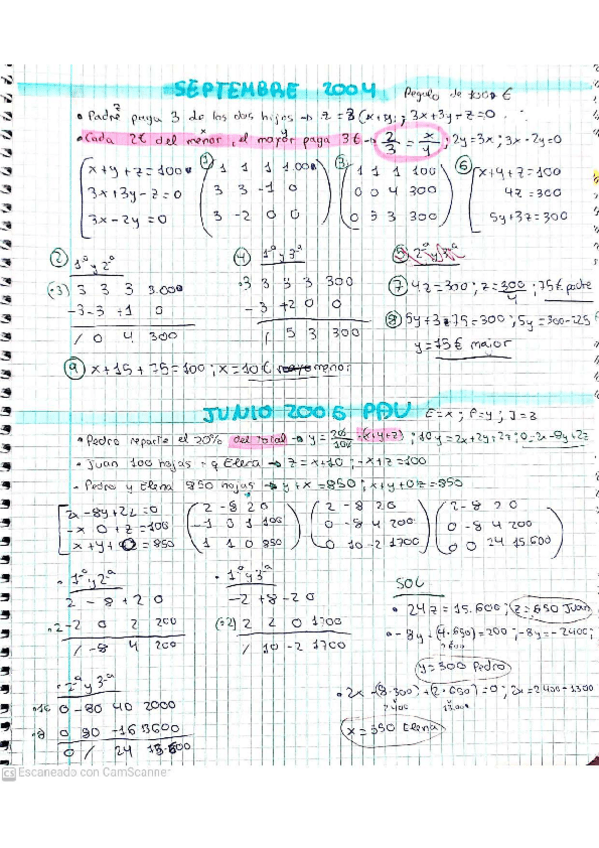 SEPTEMBRE 2004. Regulo de 1000 €
z
• Padre paga 3 de los dos hijos → z = 3(x+y); 3x+3y-z=0
x y
• Cada 2€ del menor, el mayor paga 3€ → 2/3 = x/y; 2y=3x; 3x-2y=0
x+y+z=1000 ① 1 1 1 1.000 ③ 1 1 1 100 ⑥ x+y+z=100
3x+3y-z=0 3 3 -1 0 0 0 4 300 4z=300
3x-2y=0 3 -2 0 0 0 5 3 300 5y+3z=300
② 1ª y 2ª ④ 1ª y 3ª ⑤ 2ª y 3ª
(·3) 3 3 3 3.000 ·3 3 3 3 300 ⑦ 4z=300; z=300/4; 75€ padre
-3 -3 +1 0 -3 +2 0 0 ⑧ 5y+3·75=300; 5y=300-225
/ 0 4 300 / 5 3 300 y=15€ maior
⑨ x+15+75=100; x=10€ menor
JUNIO 2006 PAU E=x; P=y; J=z
• Pedro reparte el 20% del total → y=20/100·(x+y+z); 10y=2x+2y+2z; 0=2x-8y+2z
• Juan 100 hojas + q Elena → z=x+10; -x+z=100
• Pedro y Elena 850 hojas → y+x=850; x+y+0z=850
2x-8y+2z=0 2 -8 2 0 2 -8 2 0 2 -8 2 0
-x 0+z=100 -1 0 1 100 0 -8 4 200 0 -8 4 200
x+y+0=850 1 1 0 850 0 10 -2 1700 0 0 24 15.600
• 1ª y 2ª • 1ª y 3ª SOL
2 -8 +2 0 -2 +8 -2 0 • 24z=15.600; z=650 Juan
·2 -2 0 2 200 (·2) 2 2 0 1700 • -8y+(4·650)=200; -8y=-2400;
/ -8 4 200 / 10 -2 1700 2600
y=300 Pedro
• 2ª y 3ª • 2x-(8·300)+(2·650)=0; 2x=2400-1300
·10 0 -80 40 2000 2400 1300
·8 0 80 -16 13600 x=550 Elena
0 / 24 15.600
CS Escaneado con CamScanner